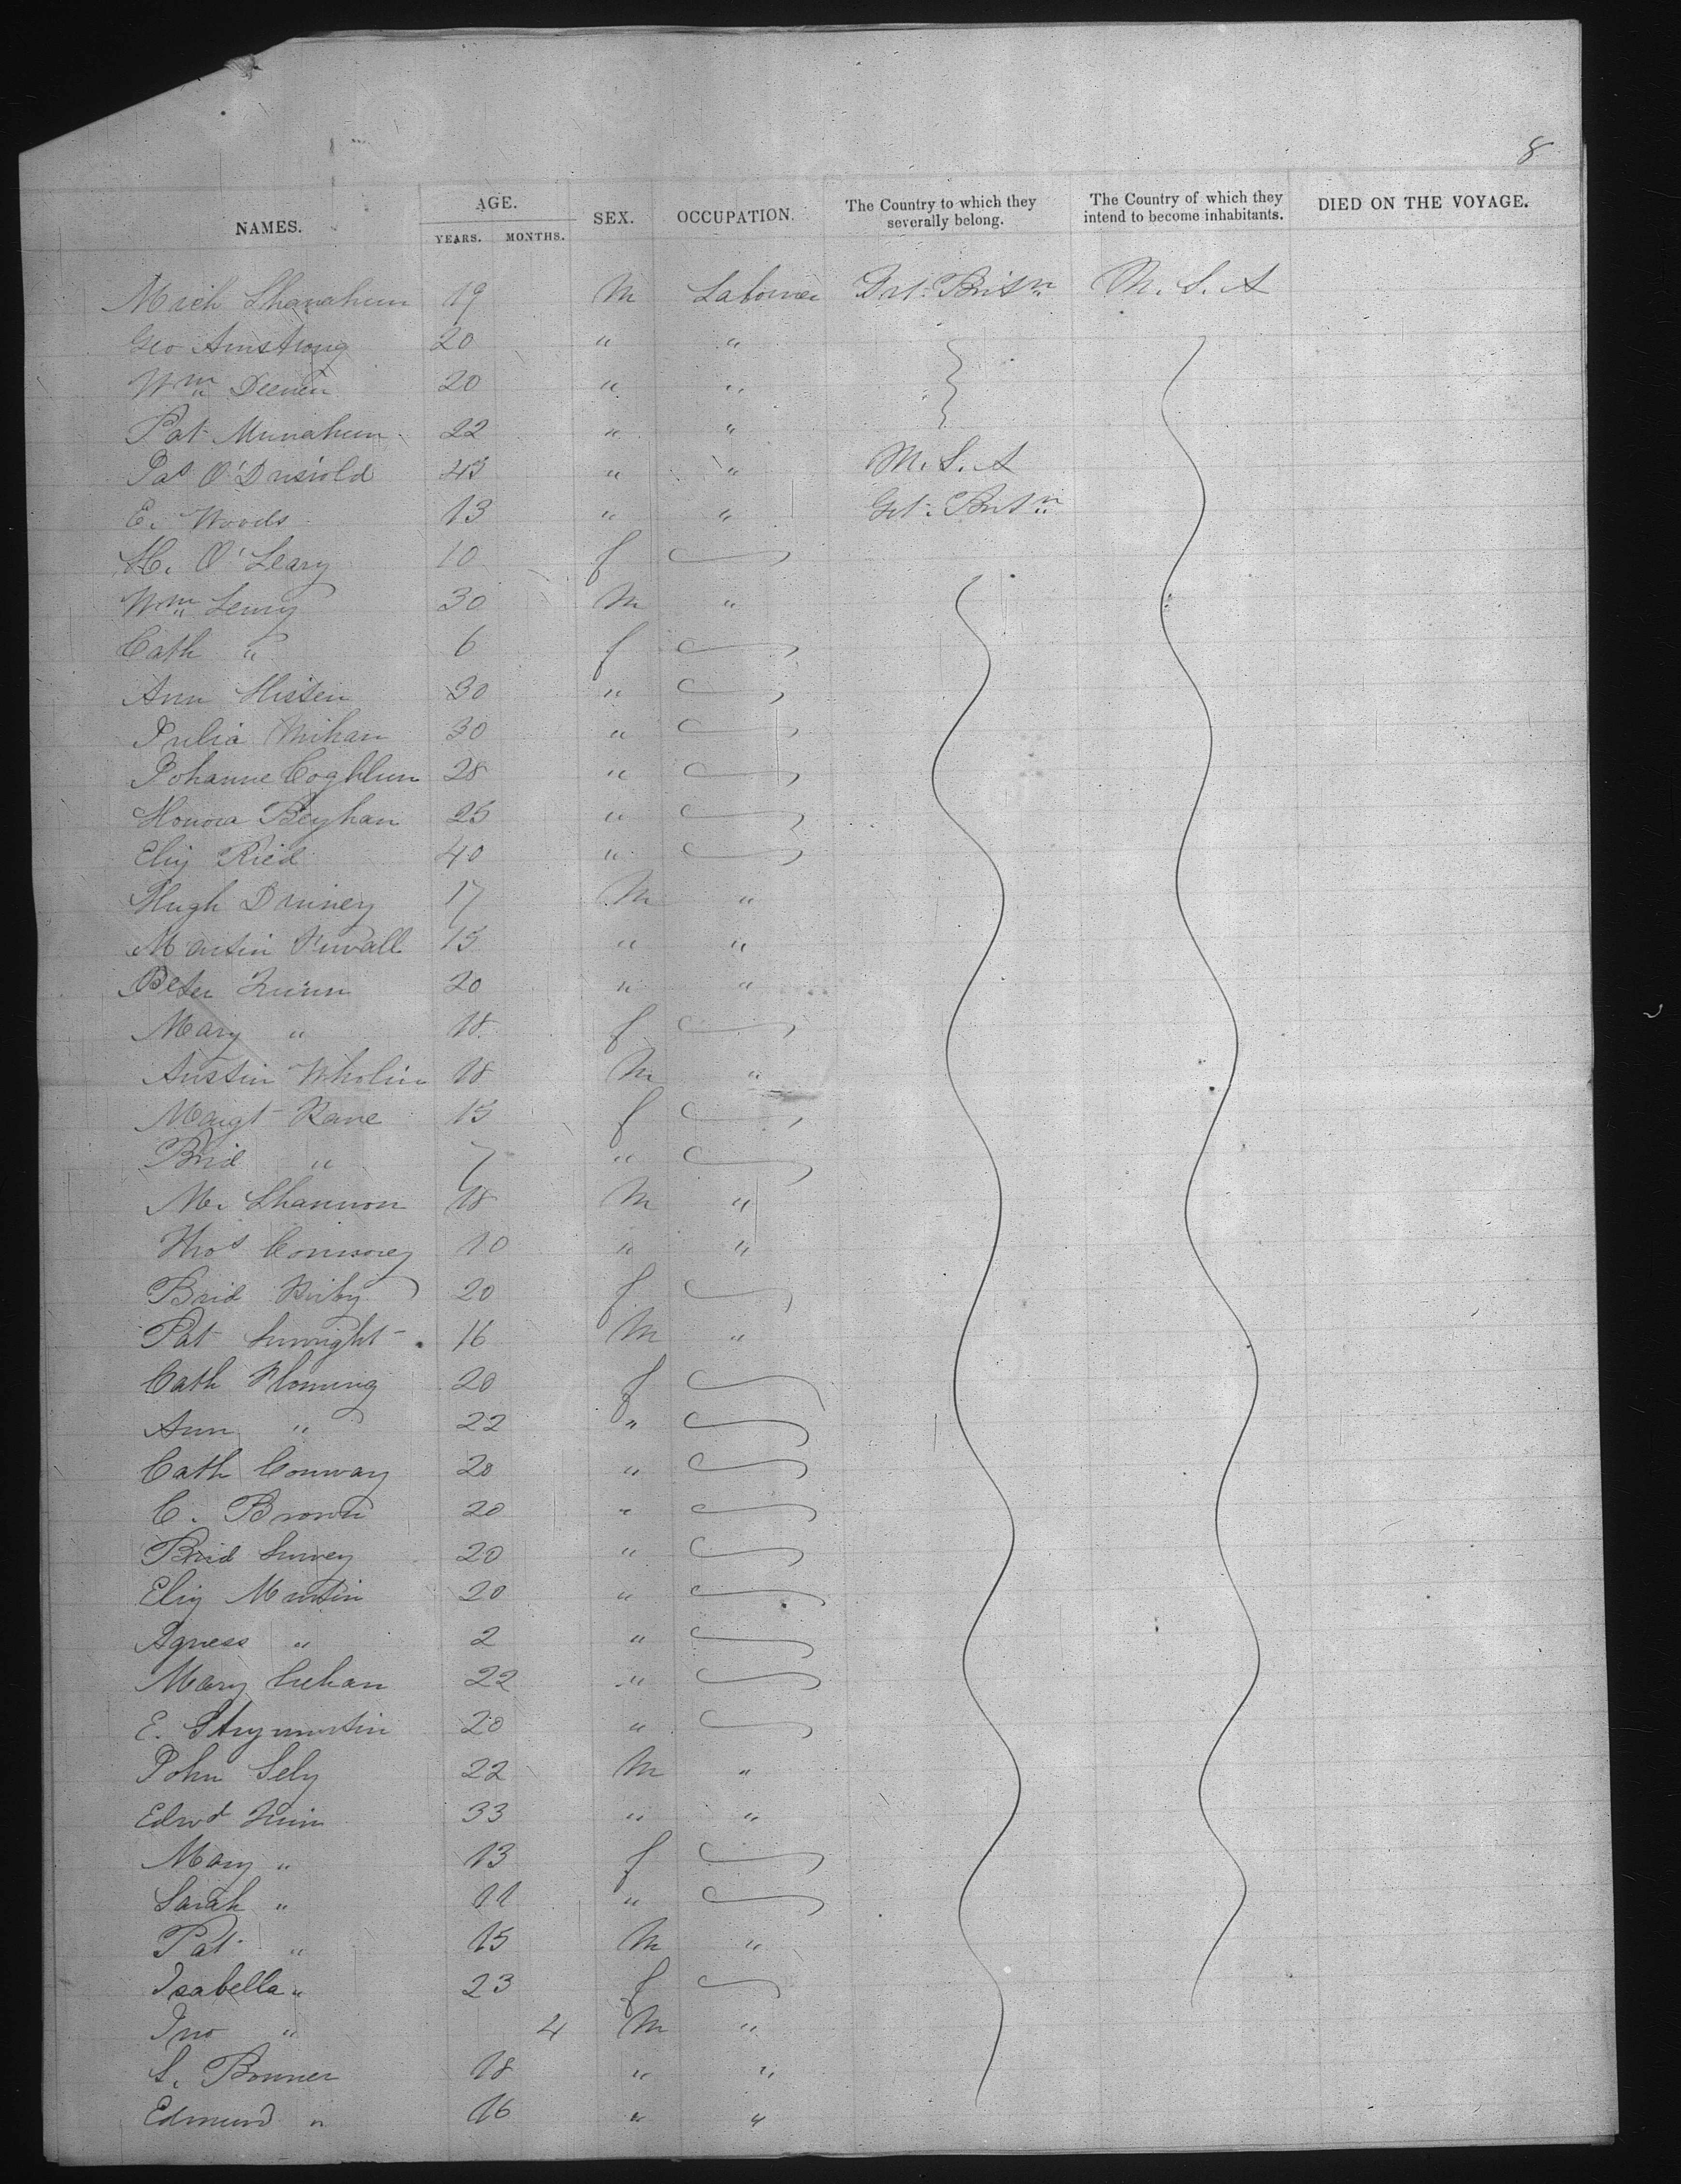 8
NAMES. AGE. YEARS. MONTHS. SEX. OCCUPATION. The Country to which they severally belong. The Country of which they intend to become inhabitants. DIED ON THE VOYAGE.
Mich Shanahun 19 M Labourer Brit: M. S. A
Geo Amstrong 20 " "
Wm 20 " "
Pat Munahun 22 " "
Pat 45 " " M. S. A
E. Woods 13 " " Grt:
M. O'Leary 10 f
Wm Leury 30 M "
Cath " 6 f
Ann Histen 30 "
Julia Mihan 30 "
Johanne Coghlun 28 "
Honora Beyhan 25 "
Eliz Ried 40 "
Hugh Druinery 17 M "
Martin 15 " "
Peter Quinn 20 " "
Mary " 18 f
Austin Wholin 18 M "
Margt Kane 15 f
Brid " 7 "
M. Shannon 18 M "
Thos 10 " "
Brid Kirby 20 f
Pat 16 M "
Cath Floming 20 f
Ann " 22 "
Cath Conway 20 "
C. Brown 20 "
Brid 20 "
Eliz Martin 20 "
Agness " 2 "
Mary 22 "
E. 20 "
John Sely 22 M "
Edwd Quin 33 " "
Mary " 13 f
Sarah " 11 "
Pat " 15 M "
Isabella " 23 f
Jno " 4 M "
S. Bonner 18 " "
Edmund " 16 " "